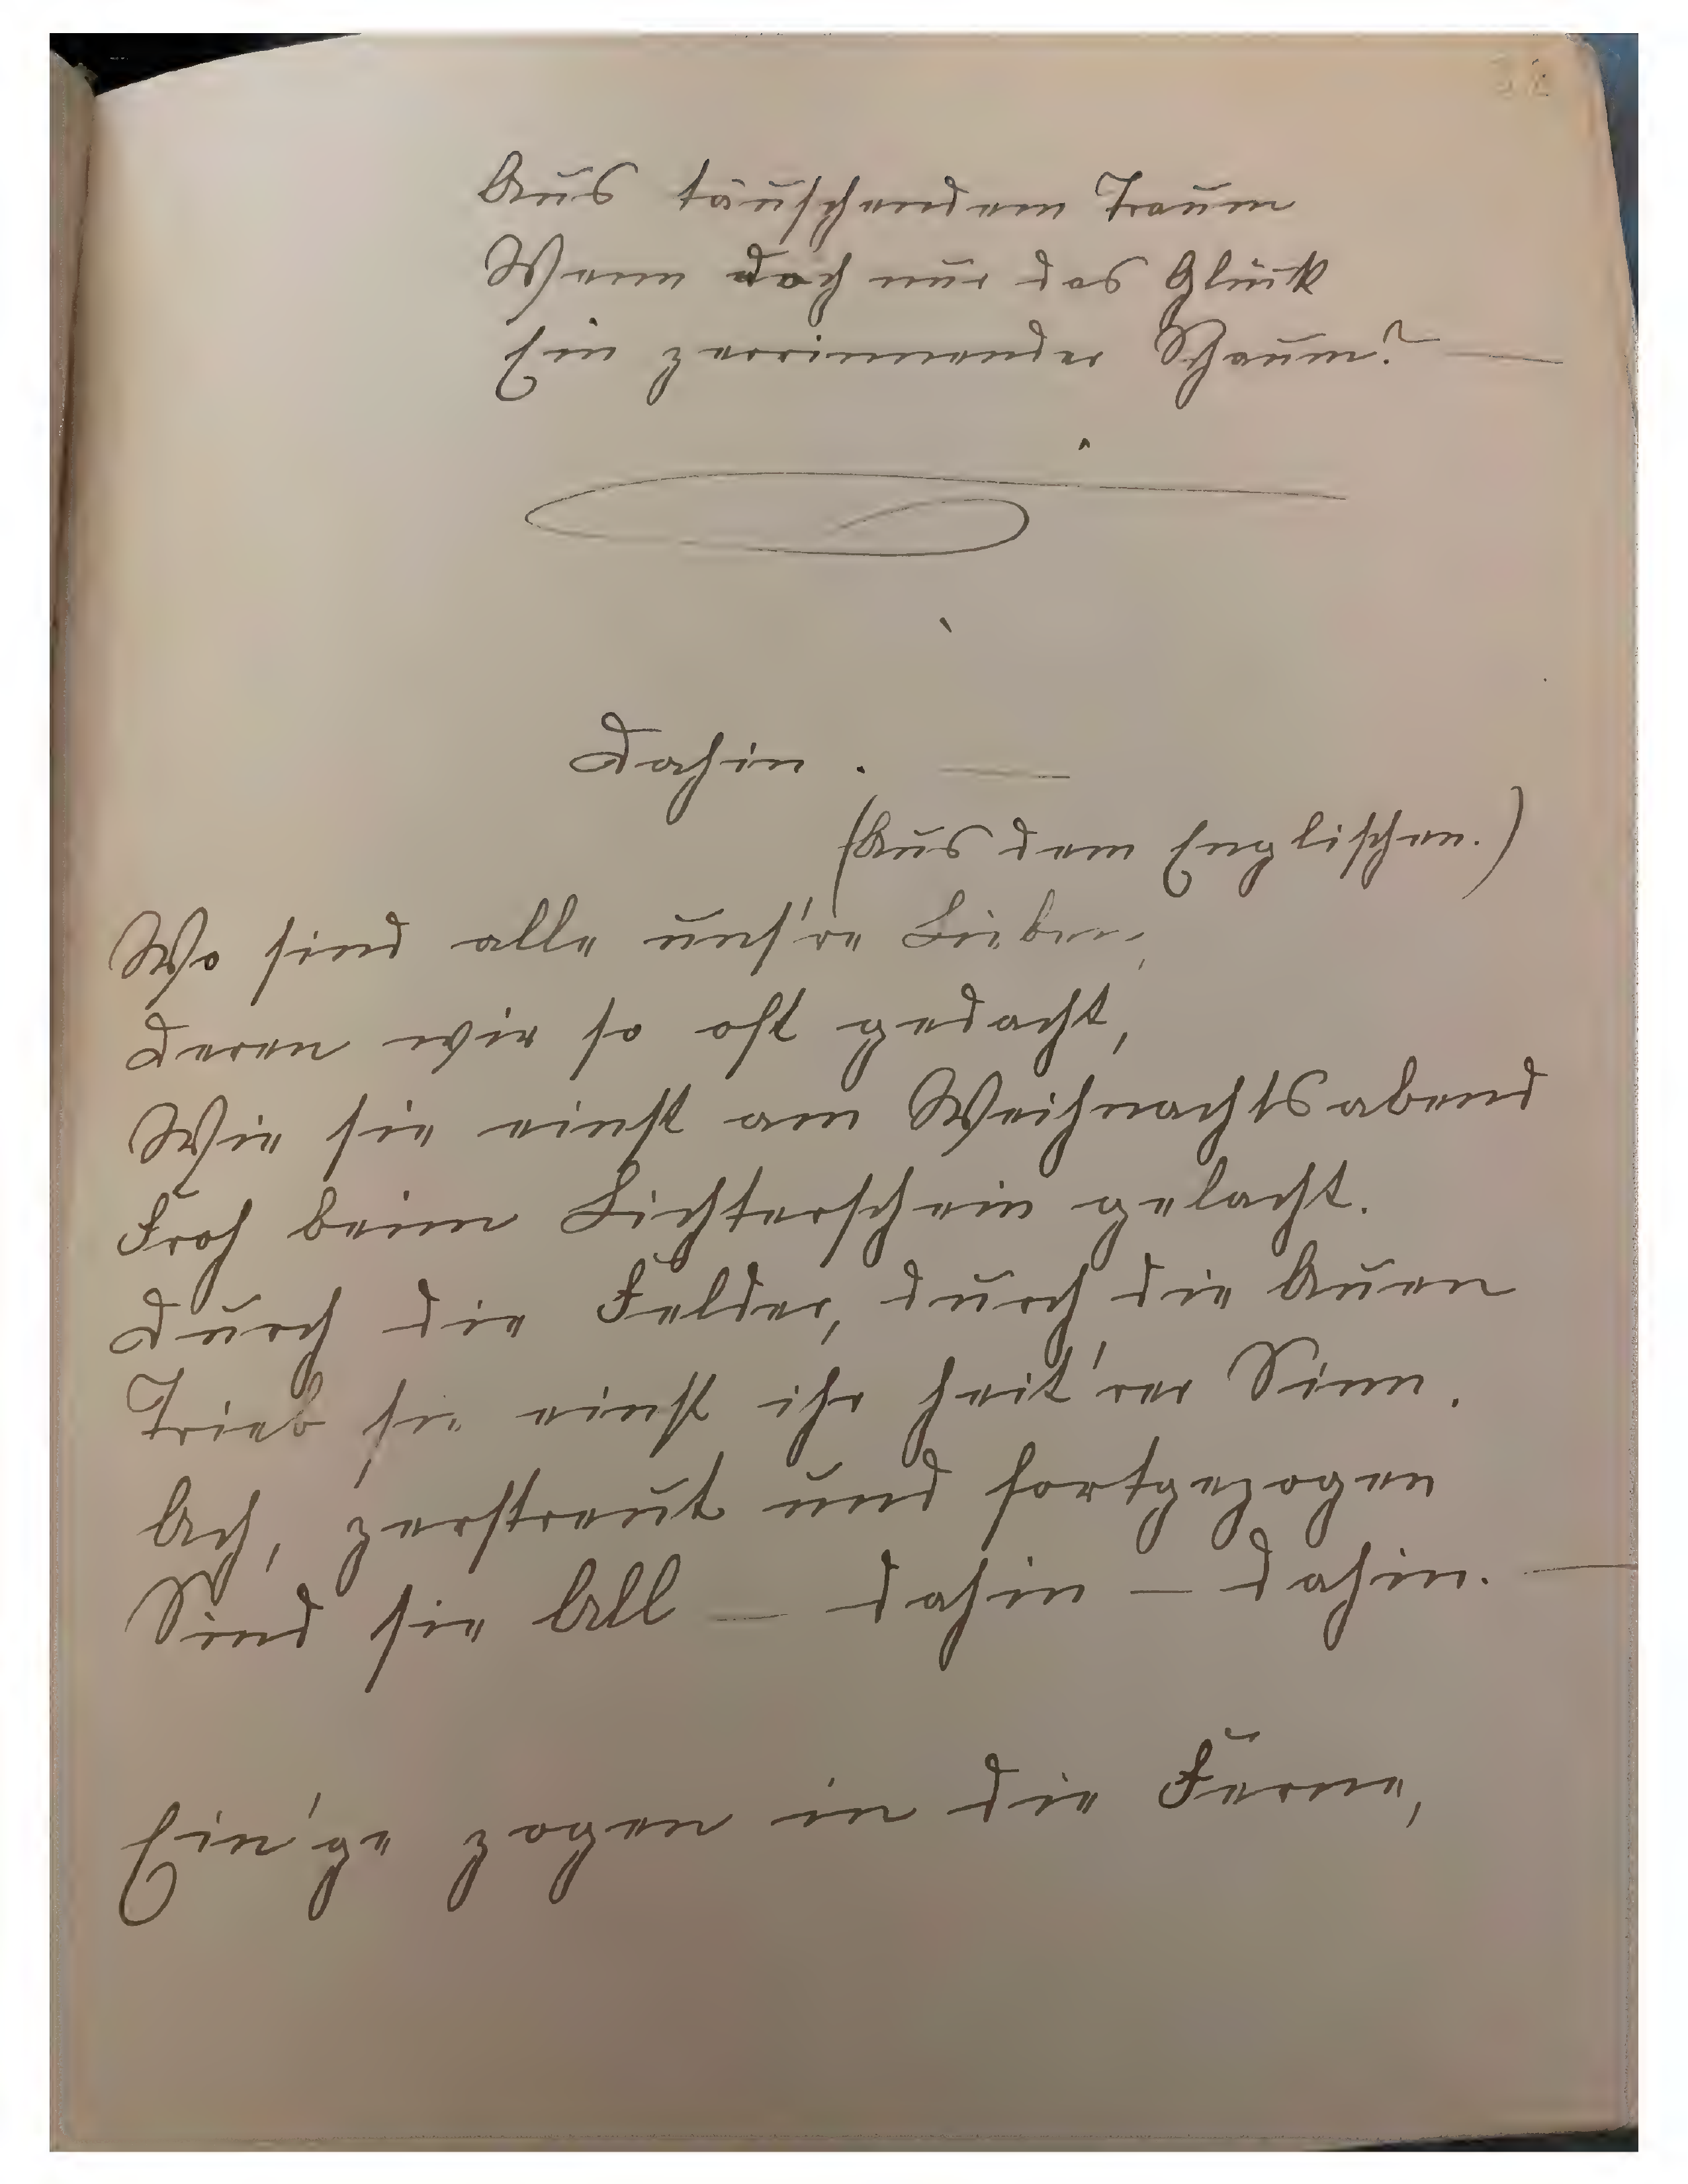 Aus täuschendem Traum
Wenn doch nur das Glück
Ein zerrinnender Schaum? —
Dahin. —
(Aus dem Englischen.)
Wo sind alle uns're Lieben,
Deren wir so oft gedacht,
Wie sie einst am Weihnachtsabend
Froh beim Lichterschein gelacht.
Durch die Felder, durch die Auen
Trieb sie einst ihr heit'rer Sinn.
Ach, zerstreut und fortgezogen
Sind sie All — dahin — dahin. —
Ein'ge zogen in die Ferne,